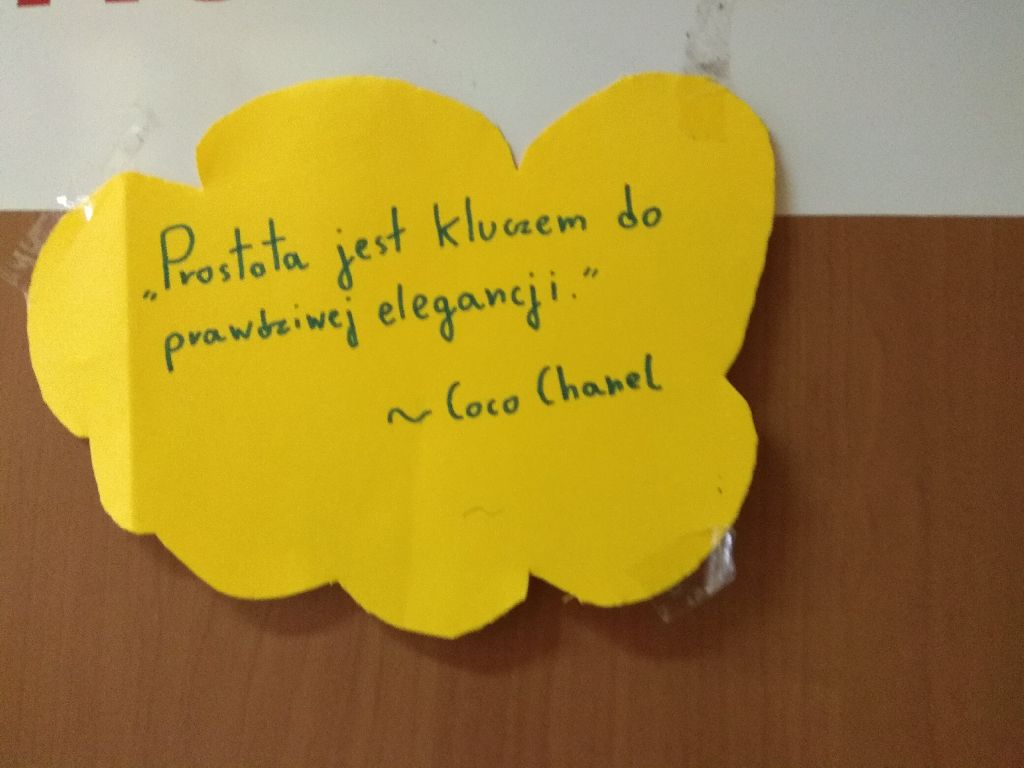 „Prostota jest kluczem do
prawdziwej elegancji."
~ Coco Chanel